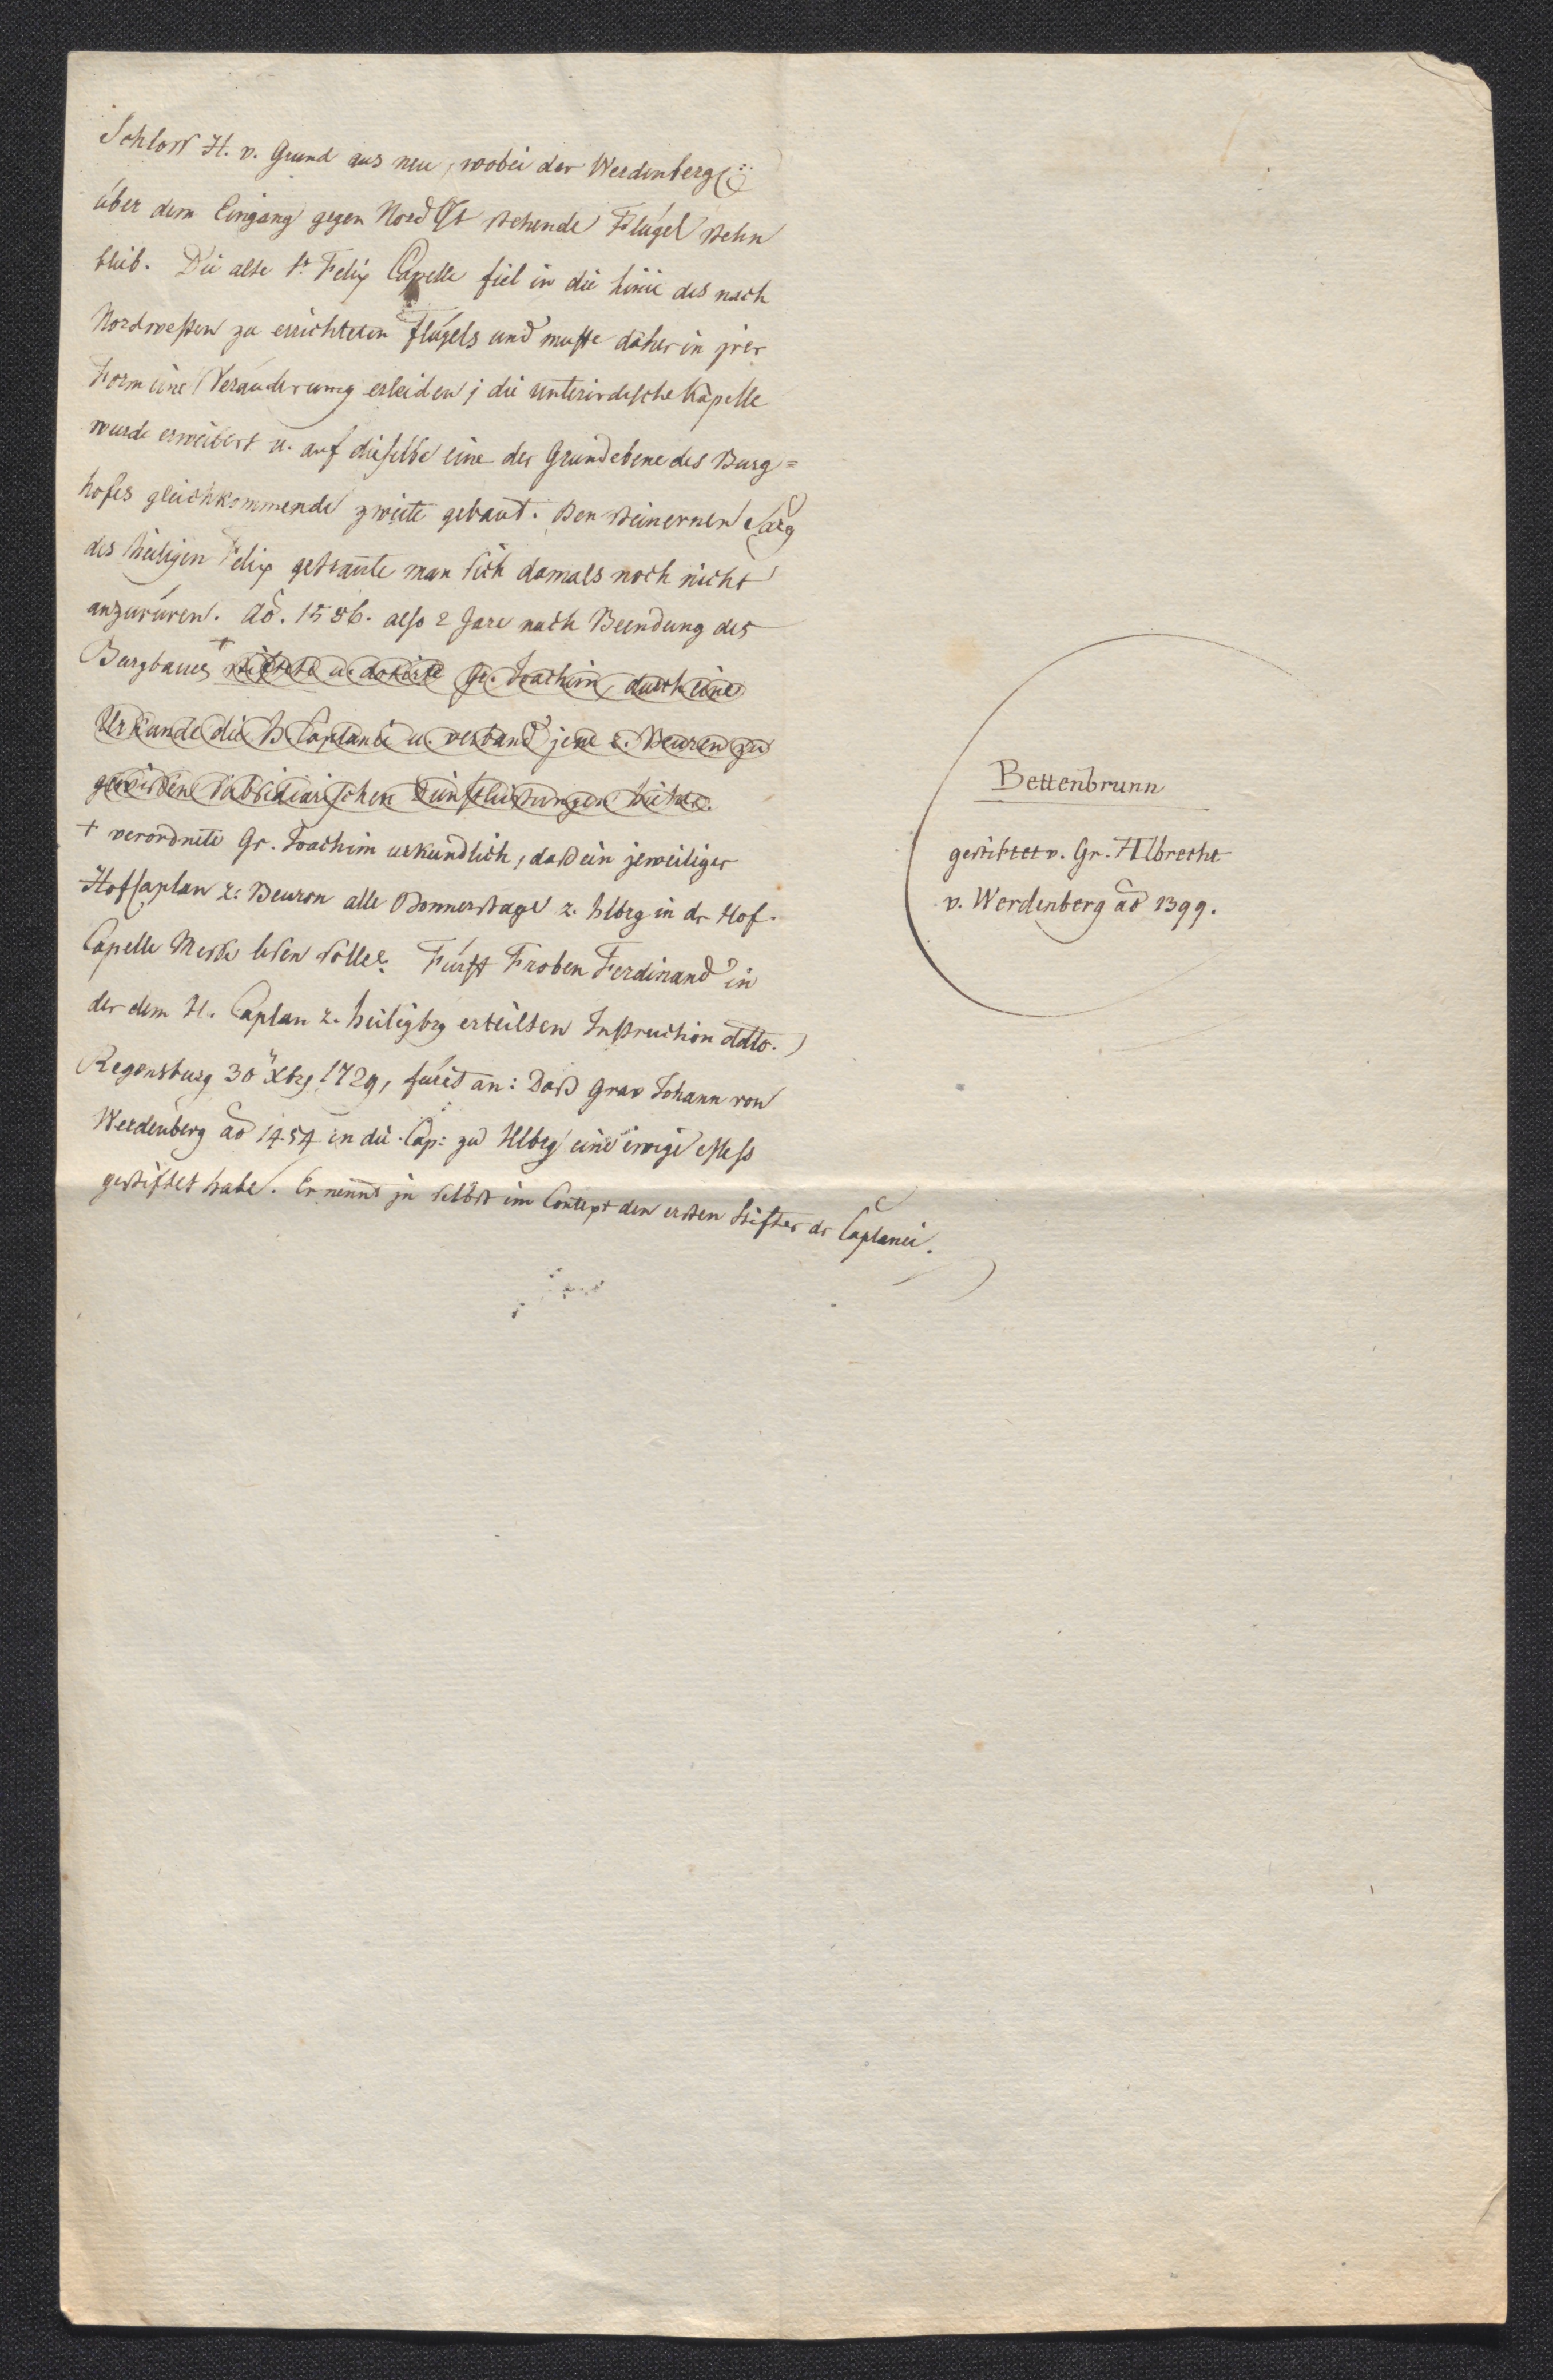 Schloss H. v. Grund aus neu, wobei der Werdenberg:
über dem Eingang gegen NordOst stehende Flügel stehn
blieb. Die alte St. Felix Capelle fiel in die Linie des nach
Nordwesten zu errichteten Flügels und muste daher in jrer
Form eine Veränderung erleiden; die unterirdische Kapelle
wurde erweitert u. auf dieselbe eine der Grundebene des Burg=
hofes gleichkommende zweite gebaut. Den steinernen Sarg
des heiligen Felix getraute man sich damals noch nicht
anzurüren. Ao. 1586. also 2 Jare nach Beendung des
Burgbaues + stiftete u. dotirte Gr. Joachim, durch eine
Urkunde die H Caplanei u. verband jene z. Beuren zu
gewissen subsidiarischen Dienstleistungen hieher.
+ verordnete Gr. Joachim urkundlich, daß ein jeweiliger
HofCaplan z. Beuron alle Donnerstage z. hlbrg in dr Hof-
Capelle Messe lesen solle. Fürst Froben Ferdinand in
der dem H. Caplan z. heiligbrg erteilten Instruction ddto.
Regensburg 30 Xbr 1729, fürt an: Daß Grav Johann von
Werdenberg ao 1454 in die Cap: zu Hlbrg eine ewige Mess
gestiftet habe. Er nennt jn selbst im Context den ersten Stifter dr Caplanei.
Bettenbrunn
gestiftet v. Gr. Albrecht
v. Werdenberg ao 1399.